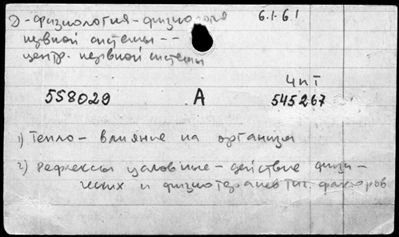 Д-физиология-физиология 6.1-6.1
нервной системы--
центр. нервной системы
4 п Т
558029 А 545267
1) Тепло - влияние на организм
2) Рефлексы условные - действие физи-
ческих и физиотерапевтич. факторов